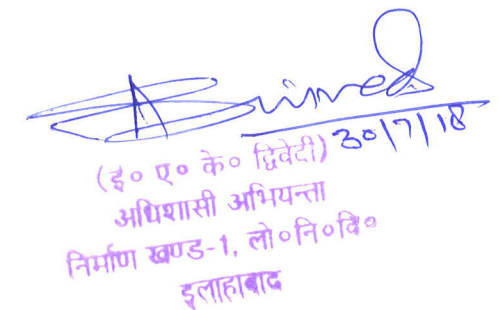 30/7/18
(इ० ए० के० द्विवेदी)
अधिशासी अभियन्ता
निर्माण खण्ड-1, लो०नि०वि०
इलाहाबाद